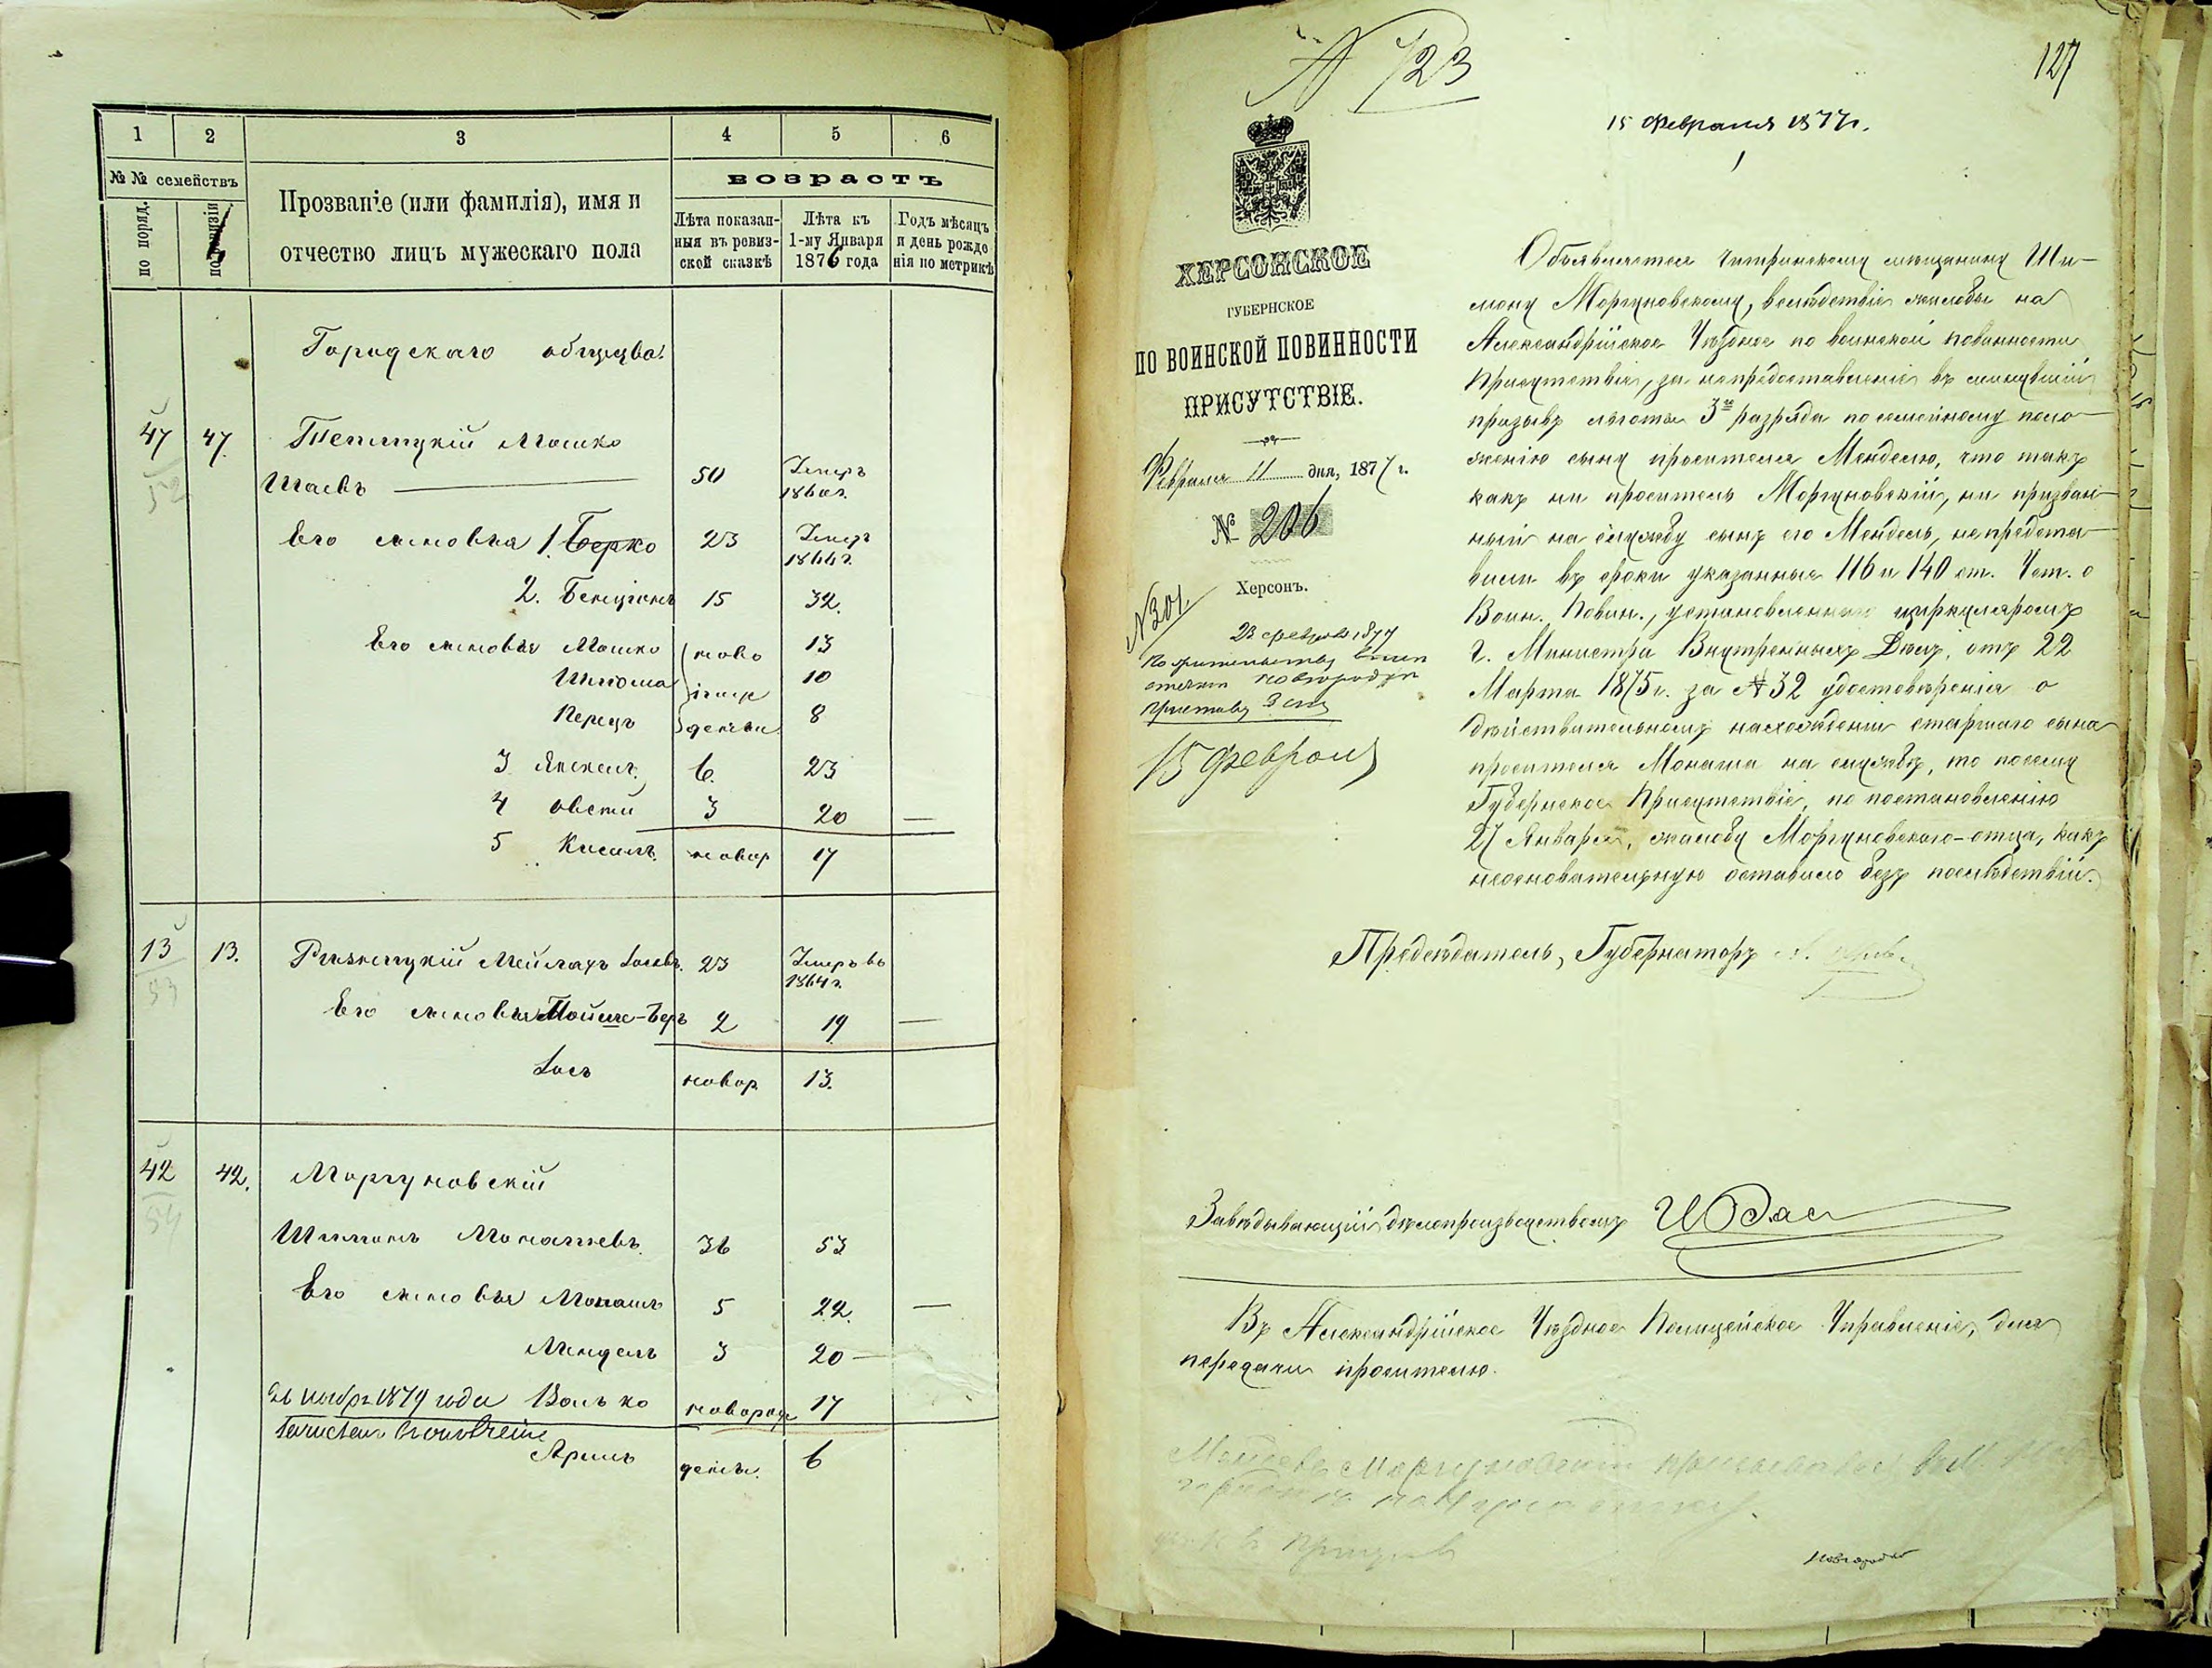 1 2 3 4 5 6
№ № семействъ
возрастъ
по поряд.
по ревизіи
Прозваніе (или фамилія), имя и
отчество лицъ мужескаго пола
Лѣта показан-
ныя въ ревиз-
ской сказкѣ
Лѣта къ
1-му Января
1876 года
Годъ мѣсяцъ
и день рожде
нія по метрикѣ
Городскаго общества.
47 47. Теплицкій Мошко
Шаевъ 50 Умеръ
1860 г.
Его сыновья 1. Берко 23 Умеръ
1866 г.
2. Бенціонъ 15 32.
Его сыновья Мошко ново 13
Шлома 10
Перецъ 8
3 Янкель 6. 23
4 Овсей 3 20 —
5 Кисиль новор 17
13 13. Ризницкій Мейлахъ Іосевъ. 23 Умеръ въ
1864 г.
Его сыновья Мойше-Беръ 2 19 —
Іось новор 13.
42 42. Моргуновскій
Шимонъ Монашевъ. 36 53
Его сыновья Монашъ 5 22. —
Мендель 3 20 —
1879 года Волько новорож 17
Аримъ 6
№ 723
127
15 Февраля 1877 г.
ХЕРСОНСКОЕ
ГУБЕРНСКОЕ
ПО ВОИНСКОЙ ПОВИННОСТИ
ПРИСУТСТВІЕ.
Февраля 11 дня, 1877 г.
№ 206
Херсонъ.
№ 301.
23 февраля 1877
приставу 3 ст
15 Февраля
Объявляется Чигринскому мѣщанину Ши-
мону Моргуновскому, вслѣдствіе жалобы на
Александрійское Уѣздное по воинской повинности
Присутствіе, за непредоставленіе въ минувшій
призывъ льготы 3го разряда по семейному поло-
женію сыну просителя Менделю, что такъ
какъ ни проситель Моргуновскій, ни призван-
ный на службу сынъ его Мендель, не предста-
вили въ сроки указанные 116 и 140 ст. Уст. о
Воин. Повин., установленныхъ циркуляромъ
г. Министра Внутреннихъ Дѣлъ, отъ 22
Марта 1875 г. за № 32 удостовѣренія о
дѣйствительномъ нахожденіи старшаго сына
просителя Монаша на службѣ, то посему
Губернское Присутствіе, по постановленію
27 Января, жалобу Моргуновскаго-отца, какъ
неосновательную оставило безъ послѣдствій.
Предсѣдатель, Губернаторъ
Завѣдывающій дѣлопроизводствомъ
Въ Александрійское Уѣздное Полицейское Управленіе, для
передачи просителю.
Моргуновскій